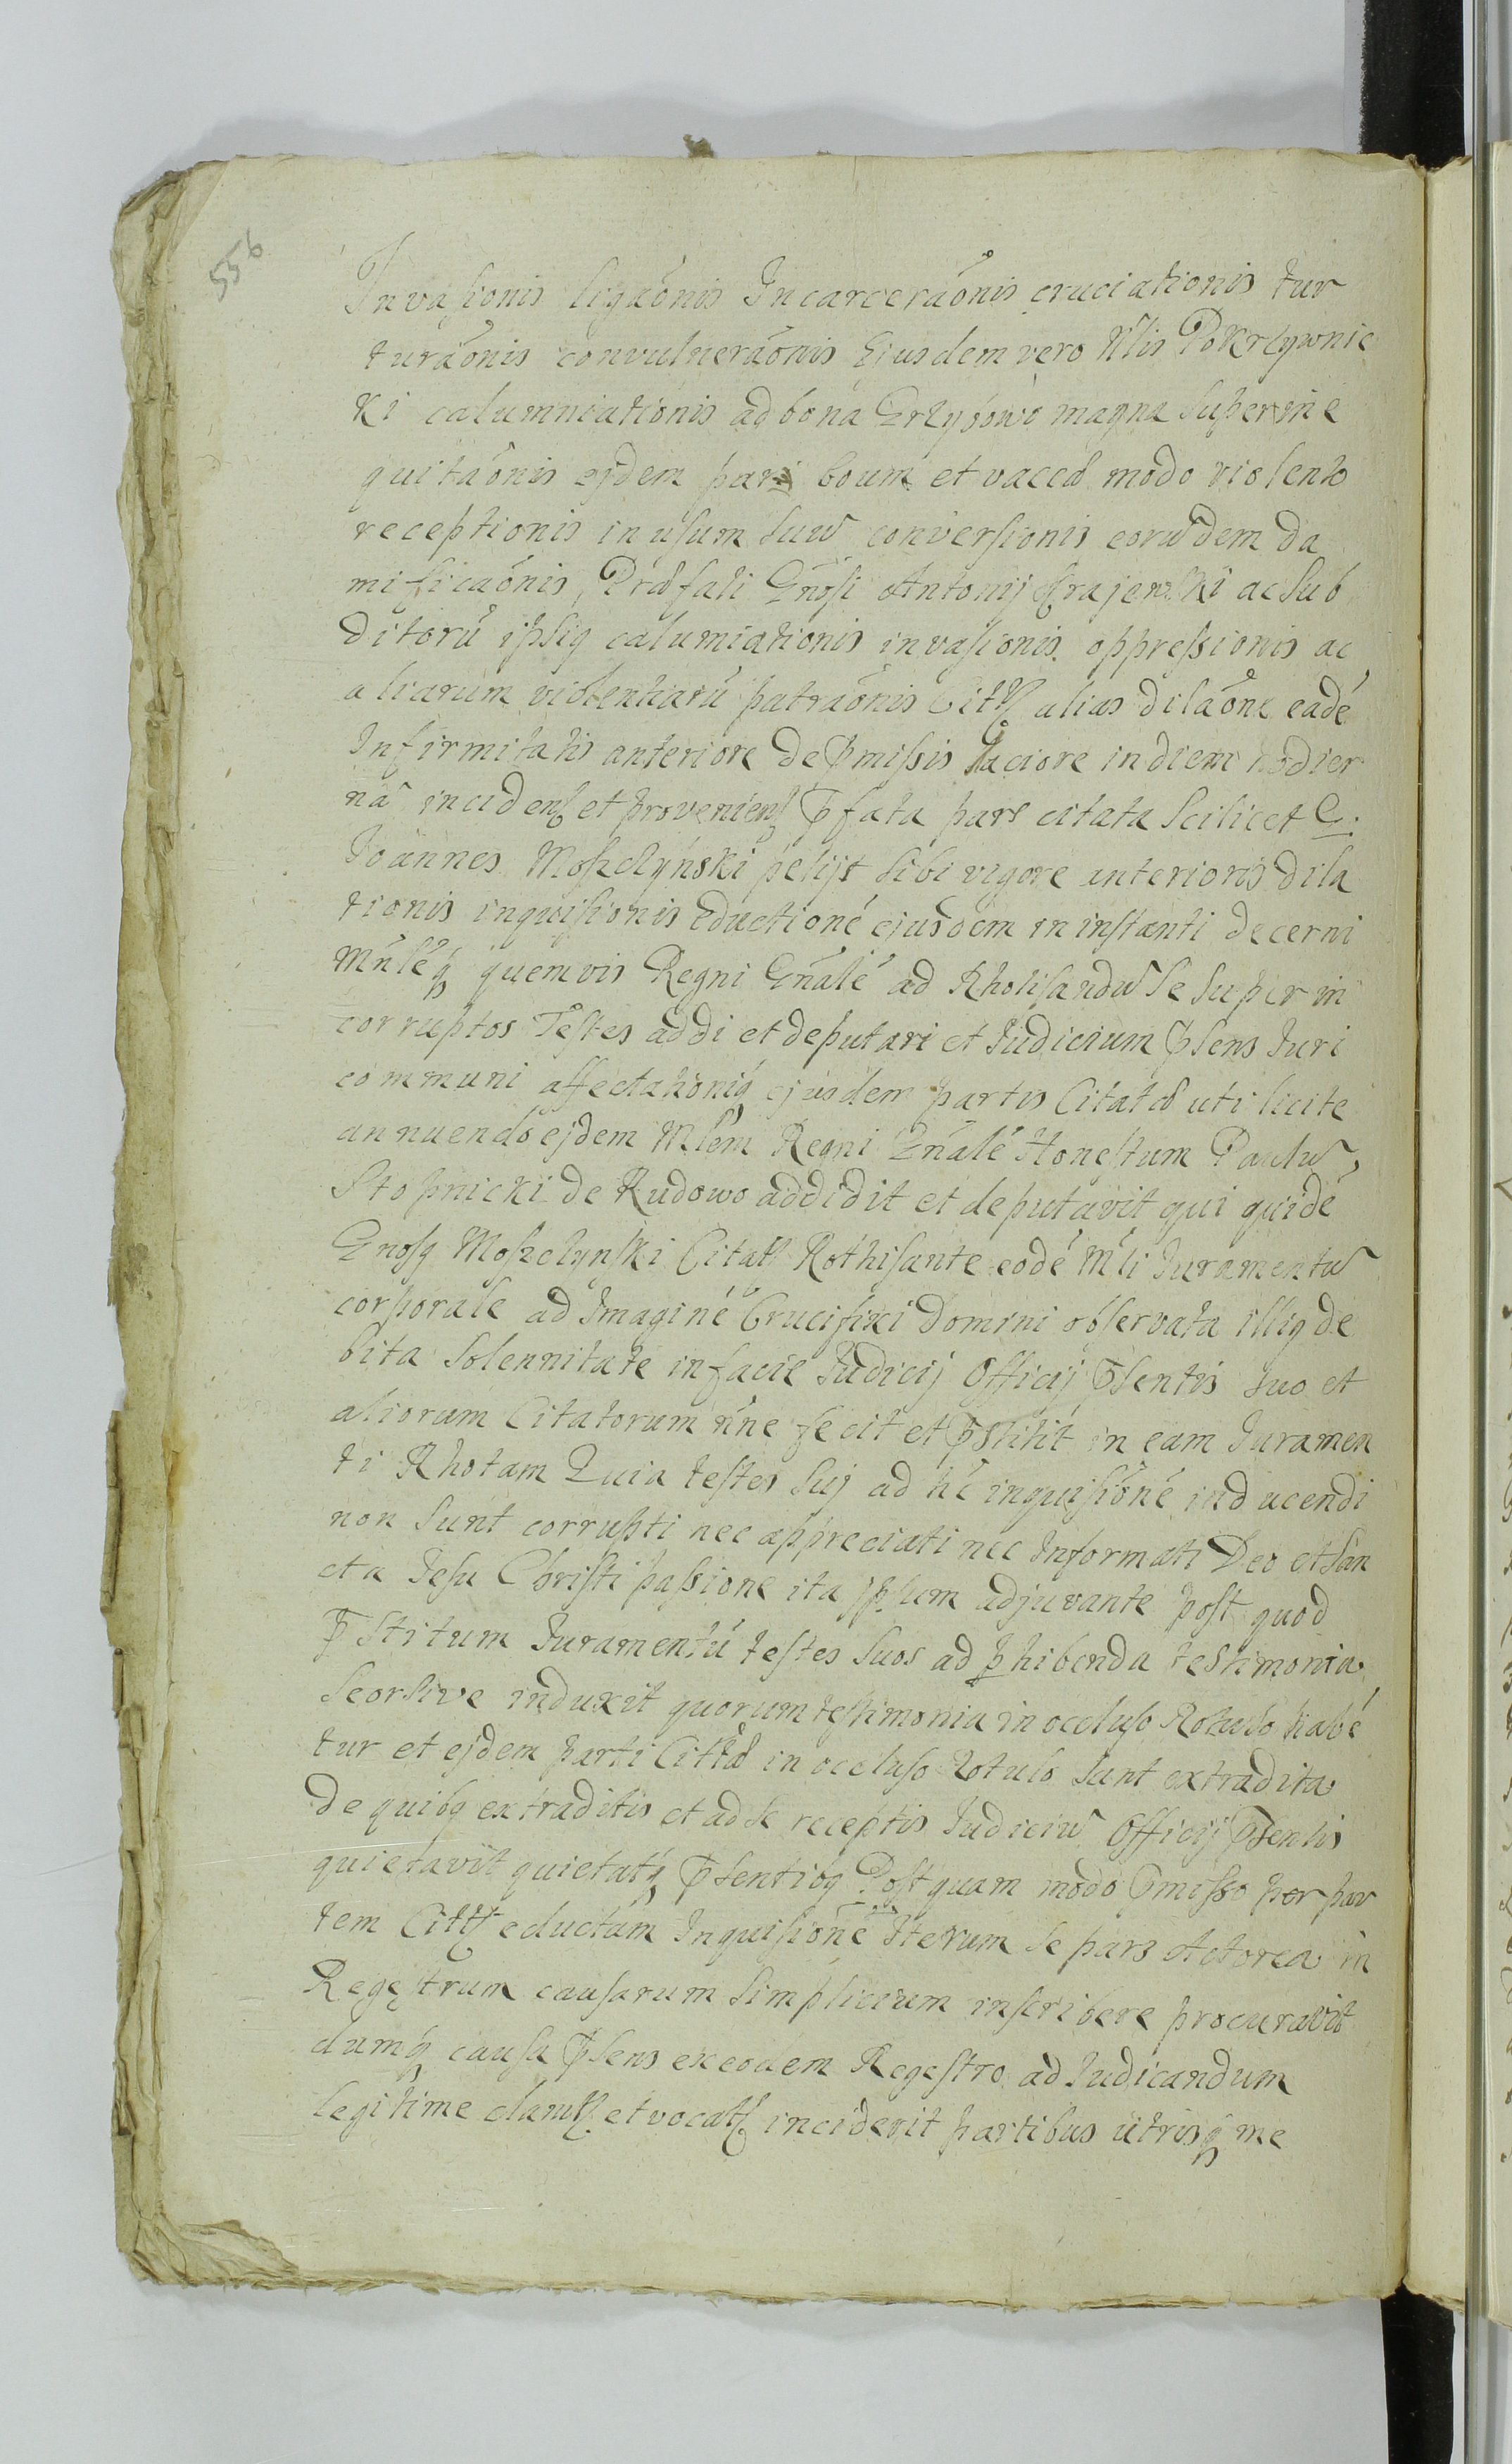 556
Invasionis ligaonis Incarceraonis cruciationis tur
turaonis convulneraonis Ejusdem vero Nlis Pokrzywnic
ki calumniationis ad bona Grzybowo magna superine
quitaonis ejdem pari boum et vaccæ modo violento
receptionis in usum suũ conversionis eorũdem da
mificaonis, Præfati Gnosi Antonij Krajewski ac sub
ditorũ ipsiq calumiationis invasionis oppressionis ac
aliarum violentiarũ patraonis Cittt alias dilaone eadé
Infirmitatis anteriore de p̃missis taciore in diem hodier
nã incidenʒ et provenienʒ p̃fata pars citata scilicet G.
Joannes Moszczynski petijt sibi vigore anterioris dila
tionis inquisionis eductioné ejusdem in instanti decerni
Mnléq quemvis Regni Gnalé ad Rhotisandũ se super in
corruptos Testes addi et deputari et Judicium p̃sens Juri
communi affectationiq ejusdem partis Citatæ uti licite
annuendo ejdem Mlem Regni Gnalé Honestum Paulũ
Stopnicki de Rudowo addidit et deputavit qui quidé
Gnosq Moszczynski Citatt Rothisante eodé Mli Juramentũ
corporale ad Imaginé Crucifixi Domini observata illiq de
bita solennitate in facie Judicij Officij p̃sentis suo et
aliorum Citatorum nne fecit et p̃stitit in eam Juramen
ti Rhotam Quia testes sui ad hc inquisioné inducendi
non sunt corrupti nec appreciati nec Informati Deo et san
cta Jesu Christi passione ita ipsum adjuvante post quod
p̃stitum Juramentũ testes suos ad p̱hibenda testimonia
seorsive induxit quorum testimonia in occluso Rotulo habé
tur et ejdem parti Cittæ in occluso Rotulo sunt extradita
De quibq extraditis et ad se receptis Judiciũ Officij p̃sentis
quietavit quietatq p̃sentibq Post quam modo p̃misso per par
tem Cittt eductam Inquisioné Iterum se pars Actorea in
Regestrum causarum simplicium inscribere procuravit
dumq causa p̃sens ex eodem Regestro ad Judicandum
legitime clamtt et vocatt inciderit partibus utrisq me